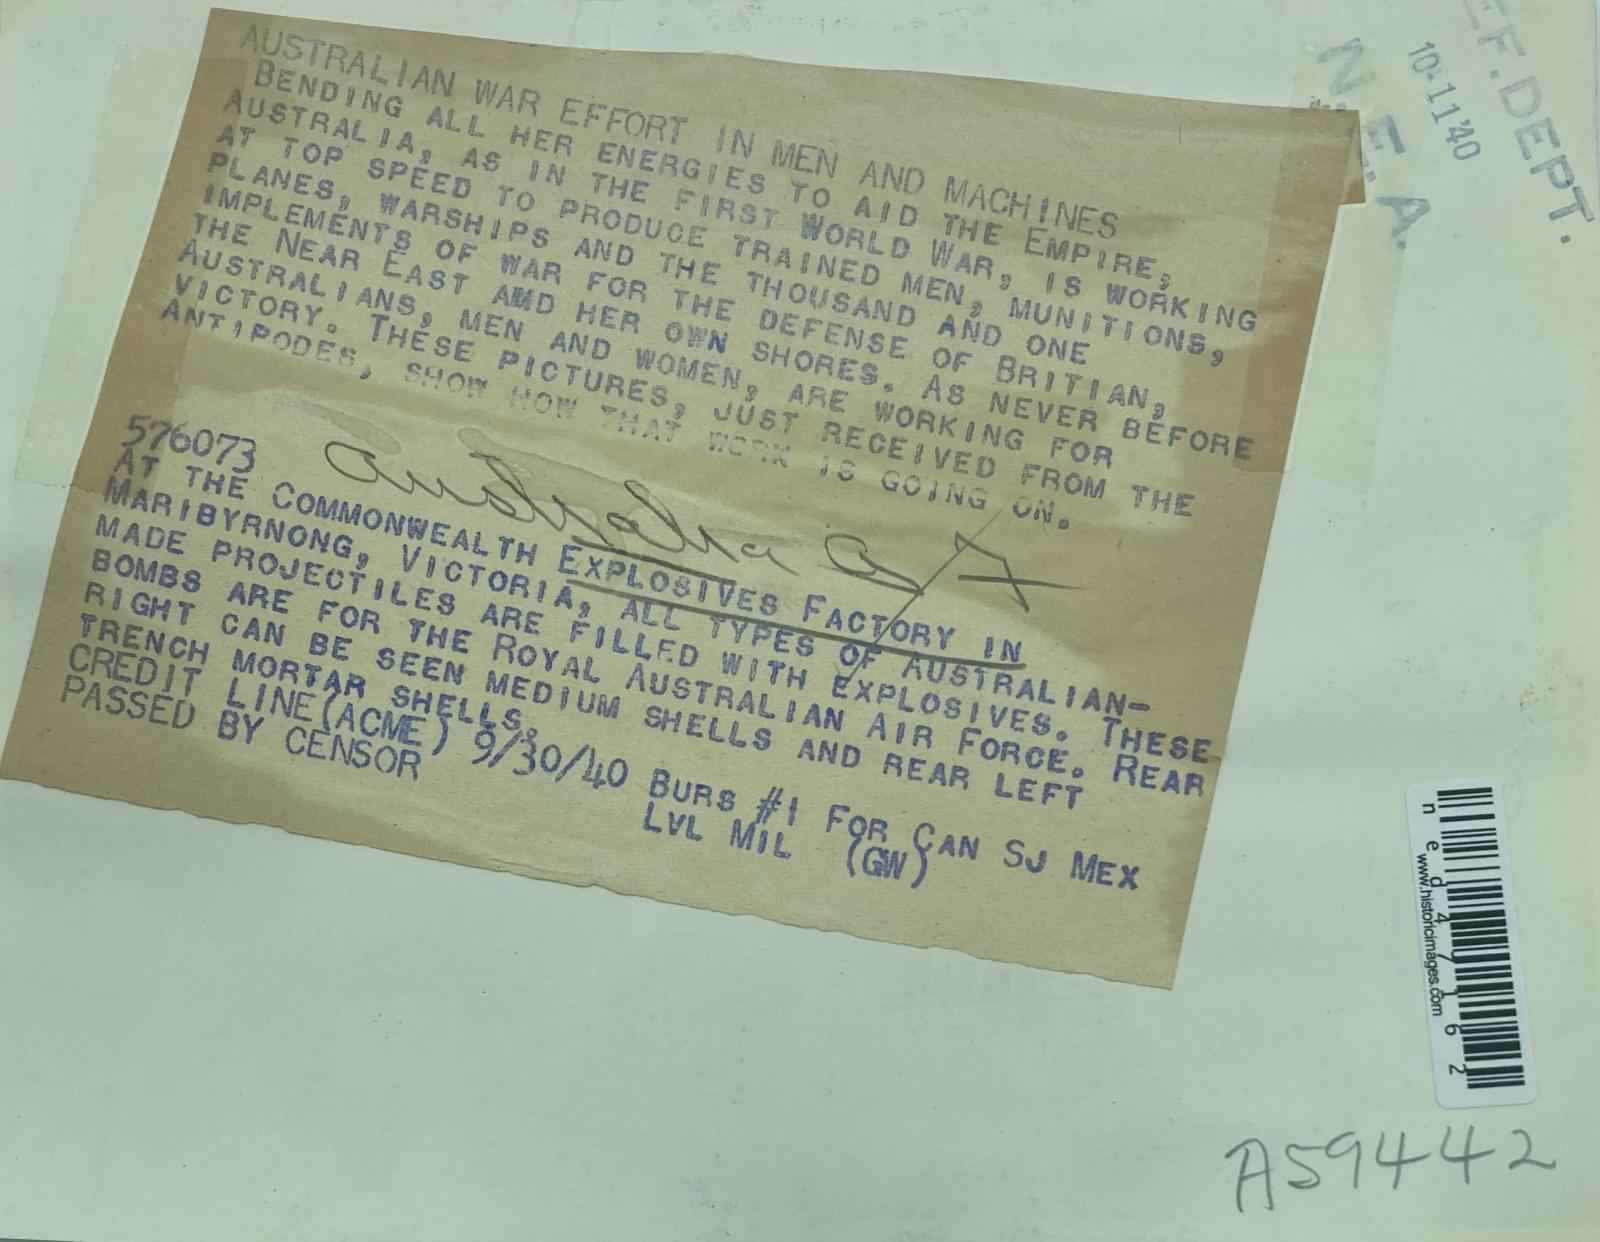 AUSTRALIAN WAR EFFORT IN MEN AND MACHINES
BENDING ALL HER ENERGIES TO AID THE EMPIRE,
AUSTRALIA, AS IN THE FIRST WORLD WAR, IS WORKING
AT TOP SPEED TO PRODUCE TRAINED MEN, MUNITIONS,
PLANES, WARSHIPS AND THE THOUSAND AND ONE
IMPLEMENTS OF WAR FOR THE DEFENSE OF BRITIAN,
THE NEAR EAST AMD HER OWN SHORES. AS NEVER BEFORE
AUSTRALIANS, MEN AND WOMEN, ARE WORKING FOR
VICTORY. THESE PICTURES, JUST RECEIVED FROM THE
ANTIPODES, SHOW HOW THAT WORK IS GOING ON.
576073
Australia
AT THE COMMONWEALTH EXPLOSIVES FACTORY IN
MARIBYRNONG, VICTORIA, ALL TYPES OF AUSTRALIAN-
MADE PROJECTILES ARE FILLED WITH EXPLOSIVES. THESE
BOMBS ARE FOR THE ROYAL AUSTRALIAN AIR FORCE. REAR
RIGHT CAN BE SEEN MEDIUM SHELLS AND REAR LEFT
TRENCH MORTAR SHELLS.
CREDIT LINE (ACME) 9/30/40 BURS #1 FOR CAN SJ MEX
PASSED BY CENSOR LVL MIL (GW)
EF. DEPT.
10-11'40
N.E.A.
ned47162
www.historicimages.com
A59442